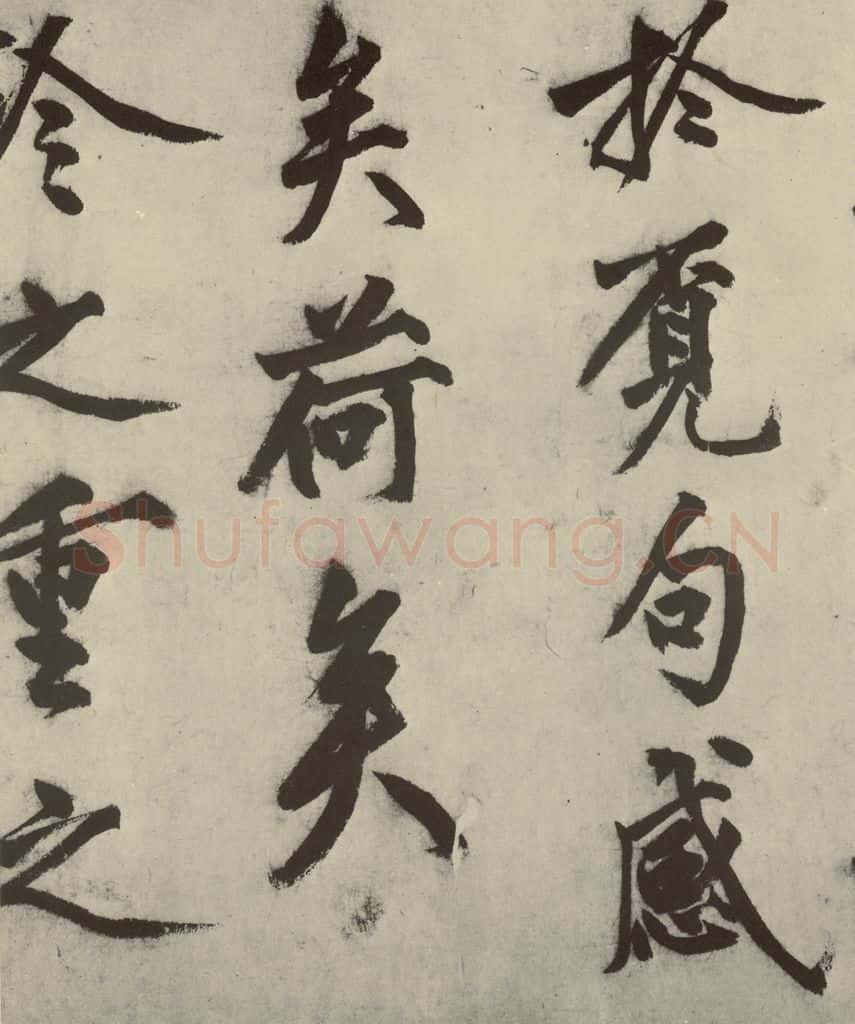 於覔句感
矣荷矣
珍之重之
Shufawang.CN